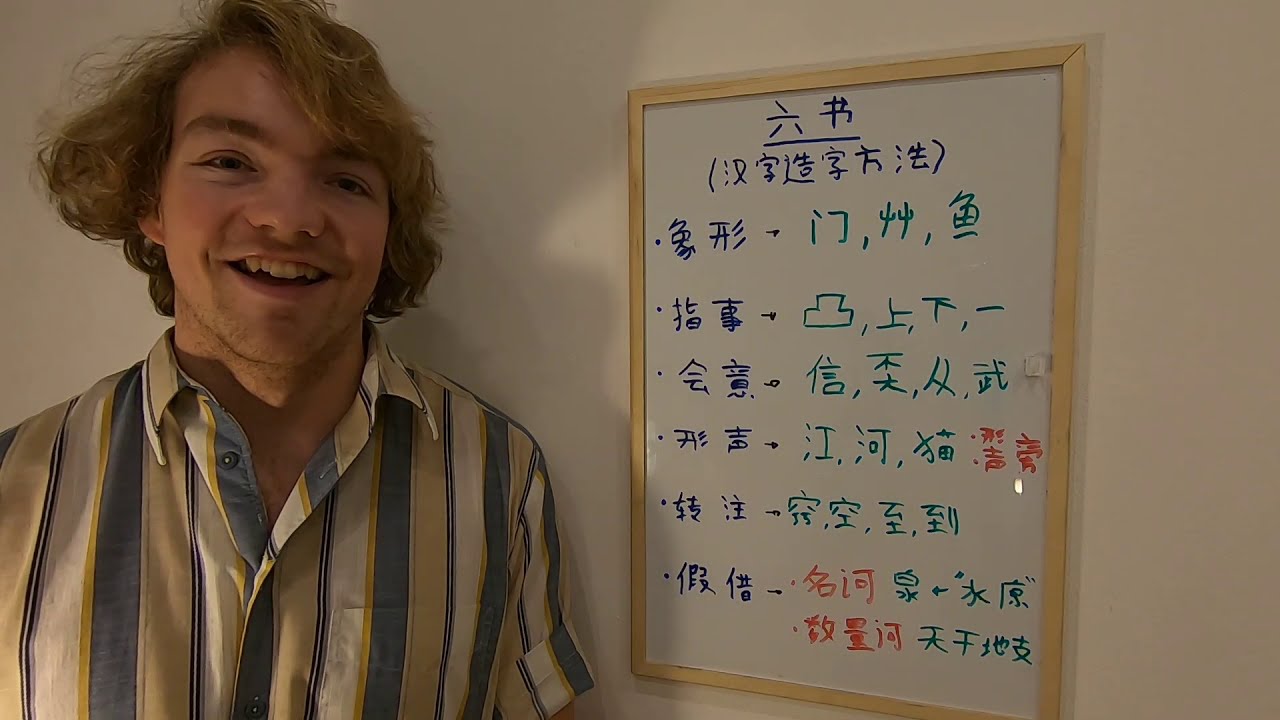 六书
(汉字造字方法)
·象形→ 门,艸,鱼
·指事→ 凸,上,下,一
·会意→ 信,奀,从,武
·形声→ 江,河,猫 ·形声旁
·转注→ 窍,空,至,到
·假借→ ·名词 泉←"水原"
·数量词 天干地支